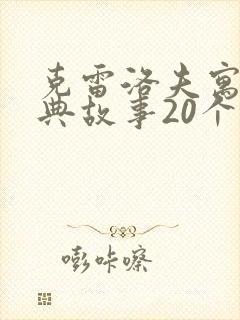 克雷洛夫寓
典故事20个
嘭咔嚓